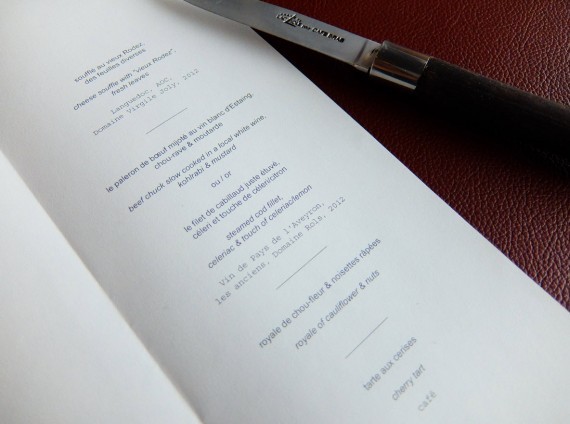 CAFE BRAS
soufflé au vieux Rodez,
des feuilles diverses
cheese souffle with "vieux Rodez",
fresh leaves
Languedoc, AOC,
Domaine Virgile Joly, 2012
le paleron de bœuf mijoté au vin blanc d'Estaing,
chou-rave & moutarde
beef chuck slow cooked in a local white wine,
kohlrabi & mustard
ou / or
le filet de cabillaud juste étuvé,
céleri et touche de céleri/citron
steamed cod fillet,
celeriac & touch of celeriac/lemon
Vin de Pays de l'Aveyron,
les anciens, Domaine Rols, 2012
royale de chou-fleur & noisettes râpées
royale of cauliflower & nuts
tarte aux cerises
cherry tart
café